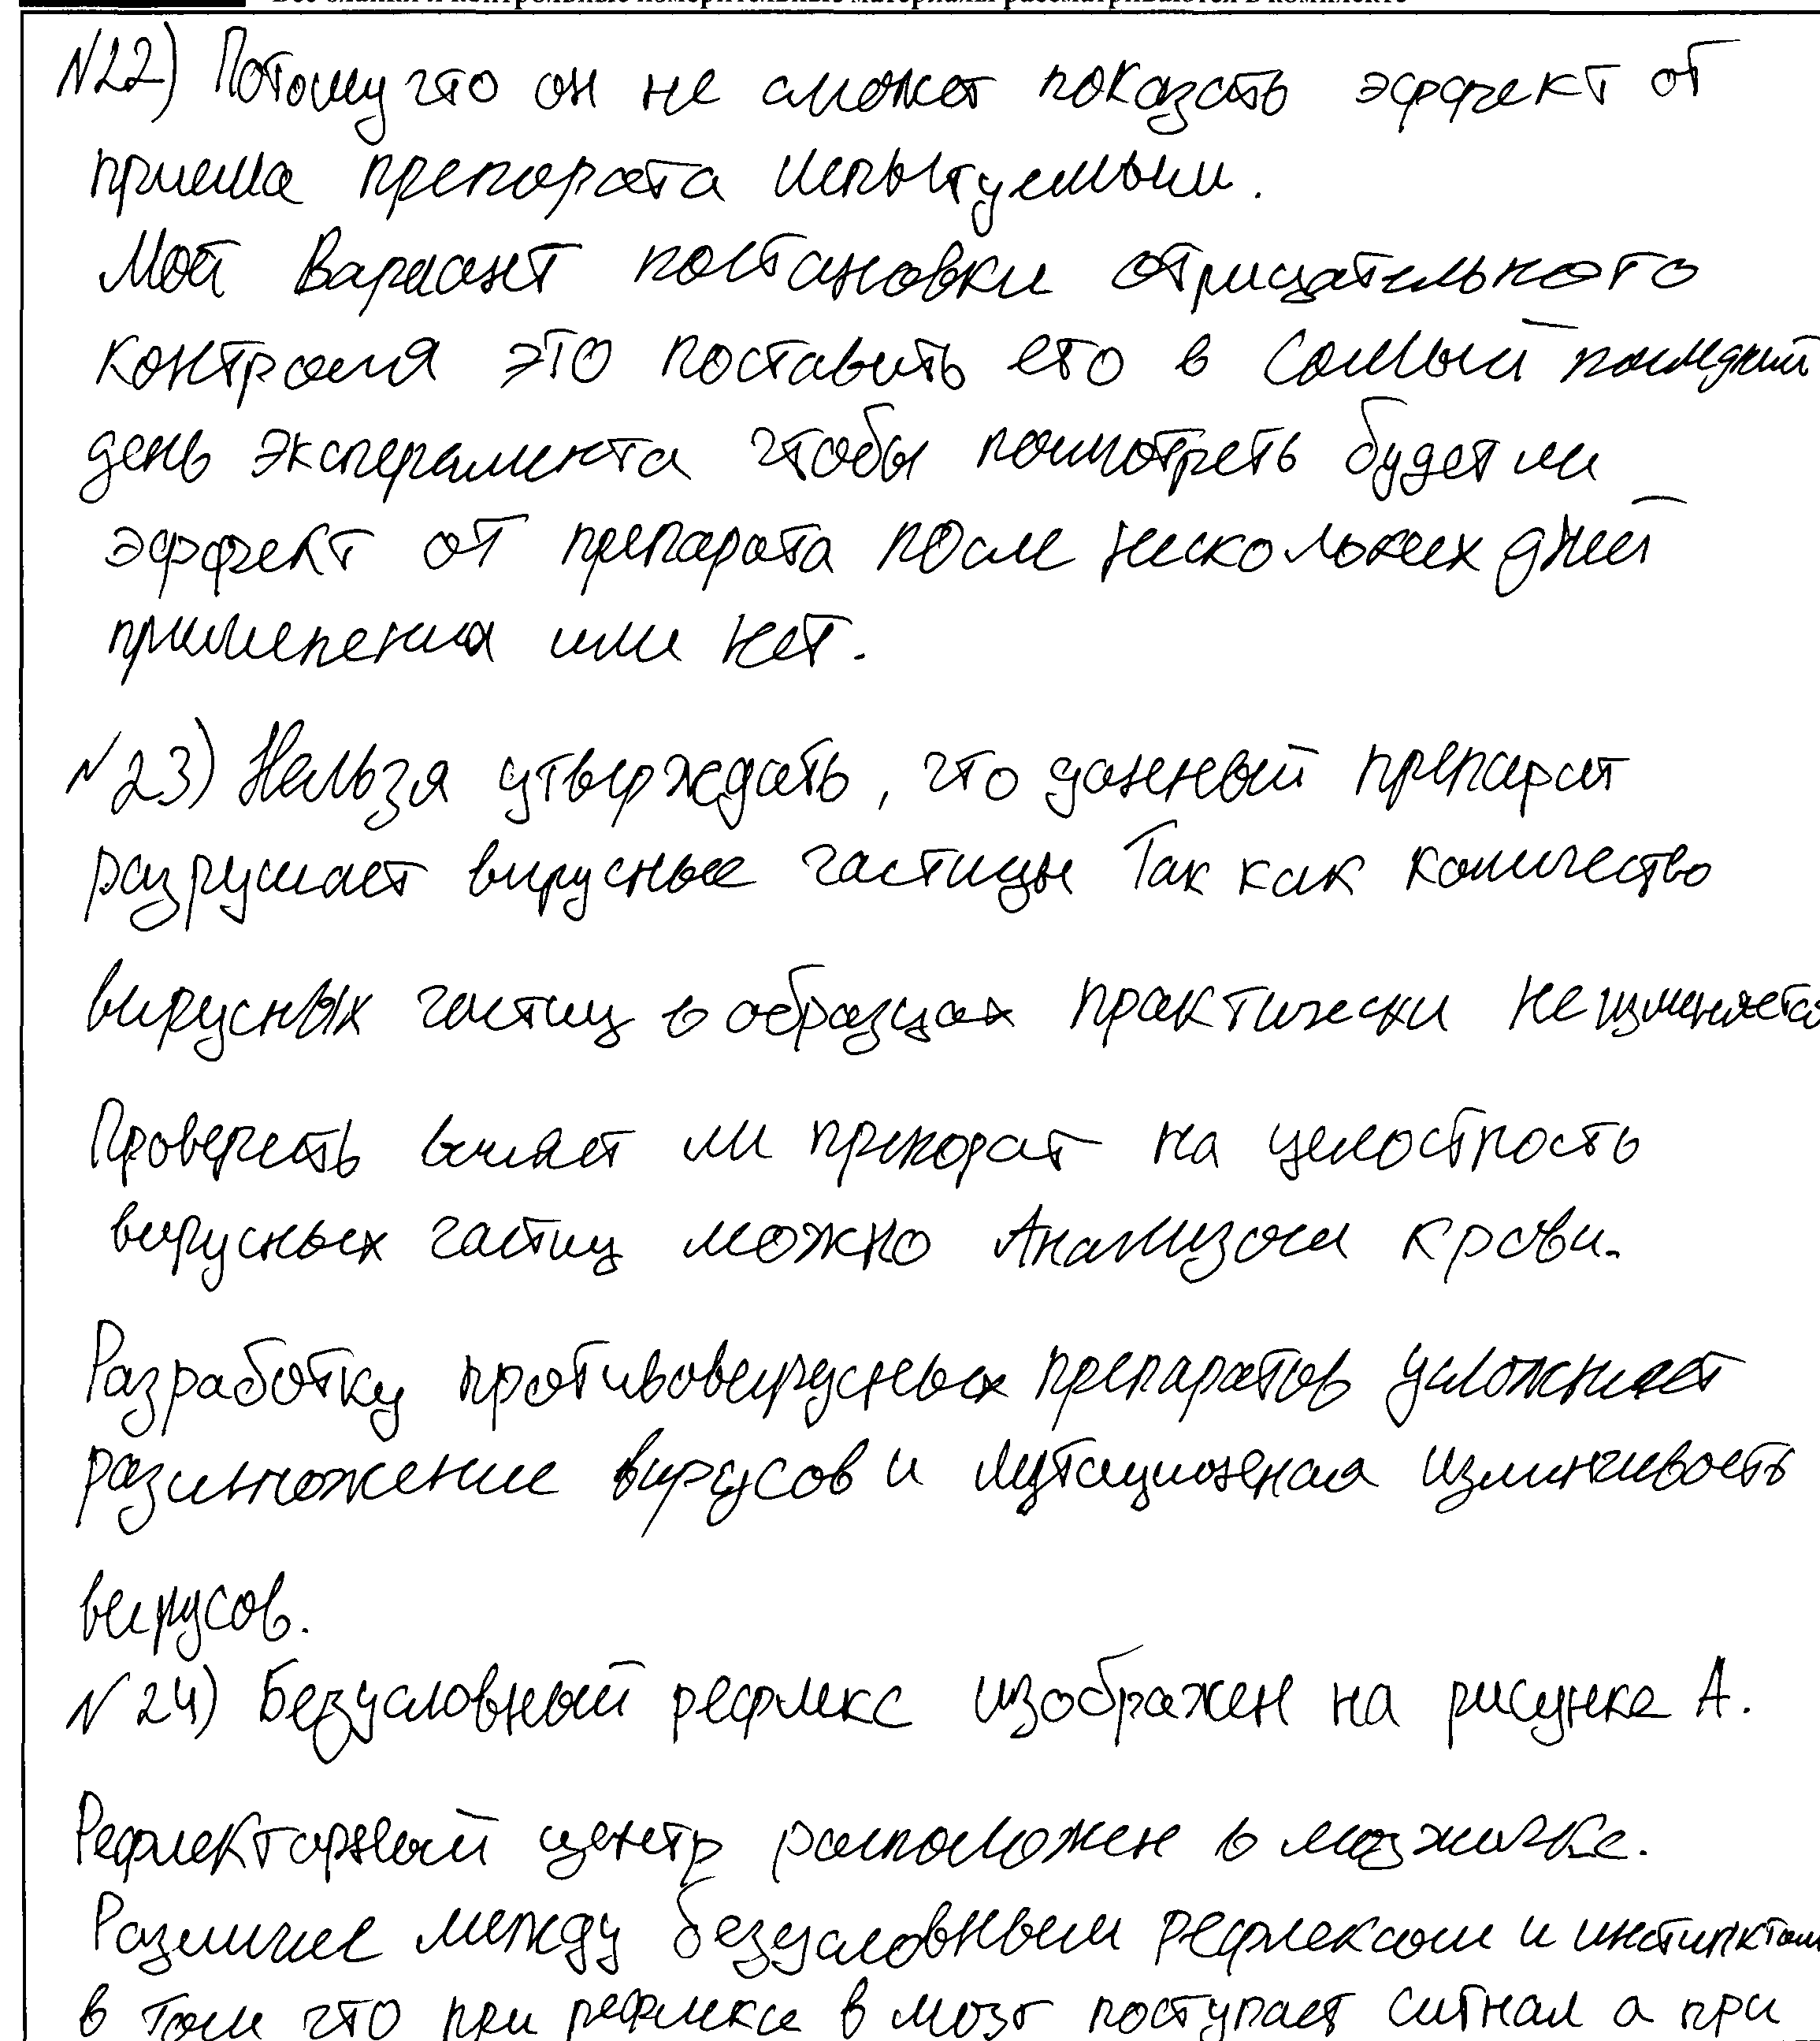 Все бланки и контрольные измерительные материалы рассматриваются в комплекте
№22) Потому что он не сможет показать эффект от
приема препарата испытуемыми.
Мой вариант постановки отрицательного
контроля это поставить его в самый последний
день эксперимента чтобы посмотреть будет ли
эффект от препарата после нескольких дней
применения или нет.
№23) Нельзя утверждать, что данный препарат
разрушает вирусные частицы Так как количество
вирусных частиц в образцах практически не изменяется
Проверить влияет ли препарат на целостность
вирусных частиц можно Анализом крови.
Разработку противовирусных препаратов усложняет
размножение вирусов и мутационная изминчивость
вирусов.
№24) Безусловный рефлекс изображен на рисунке А.
Рефлекторный центр расположен в мозжичке.
Различие между безусловным рефлексом и инстинктом
в том что при рефлексе в мозг поступает сигнал а при